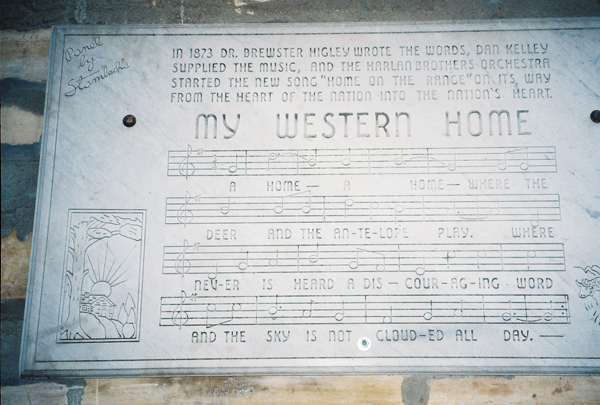 Panel
by
Stambach
IN 1873 DR. BREWSTER HIGLEY WROTE THE WORDS, DAN KELLEY
SUPPLIED THE MUSIC, AND THE HARLAN BROTHERS ORCHESTRA
STARTED THE NEW SONG "HOME ON THE RANGE" ON ITS WAY
FROM THE HEART OF THE NATION INTO THE NATION'S HEART.
MY WESTERN HOME
A HOME — A HOME — WHERE THE
DEER AND THE AN-TE-LOPE PLAY. WHERE
NEV-ER IS HEARD A DIS — COUR-AG-ING WORD
AND THE SKY IS NOT CLOUD-ED ALL DAY. —